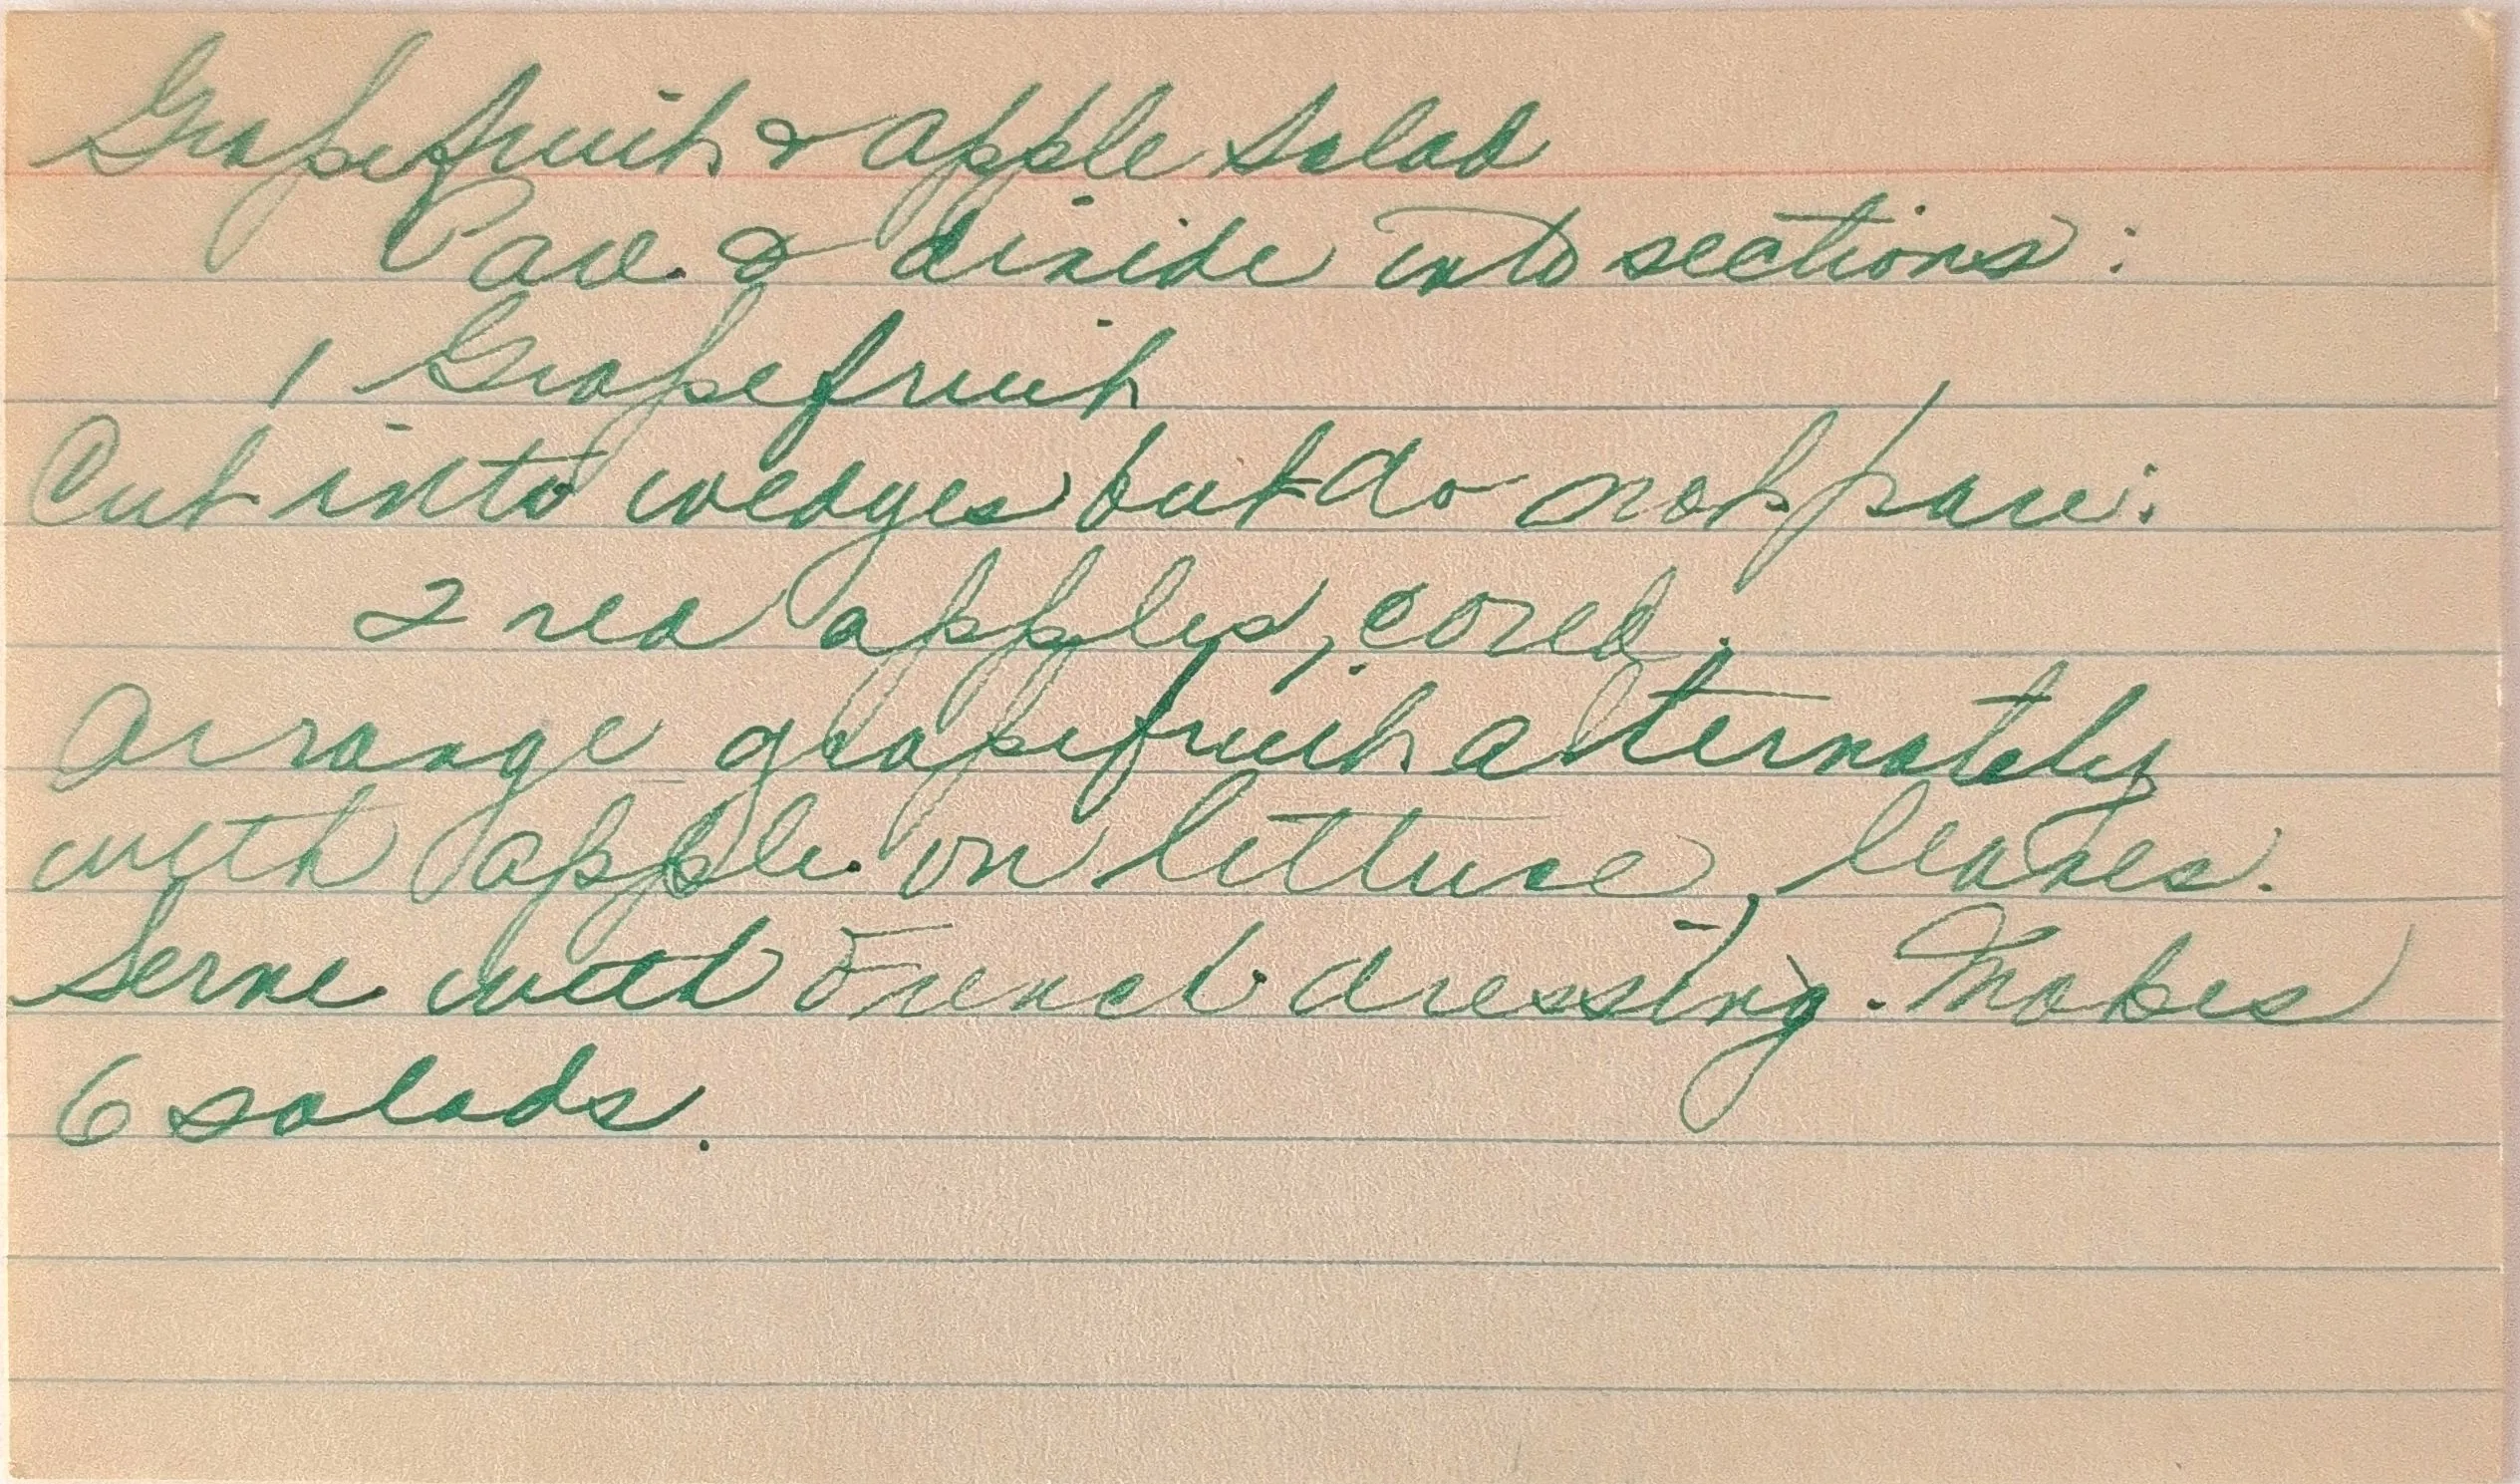 Grapefruit & Apple Salad
Pare & divide into sections:
1 Grapefruit
Cut into wedges but do not pare:
2 red apples, cored.
Arrange grapefruit alternately
with apple on lettuce leaves.
Serve with French dressing. Makes
6 salads.